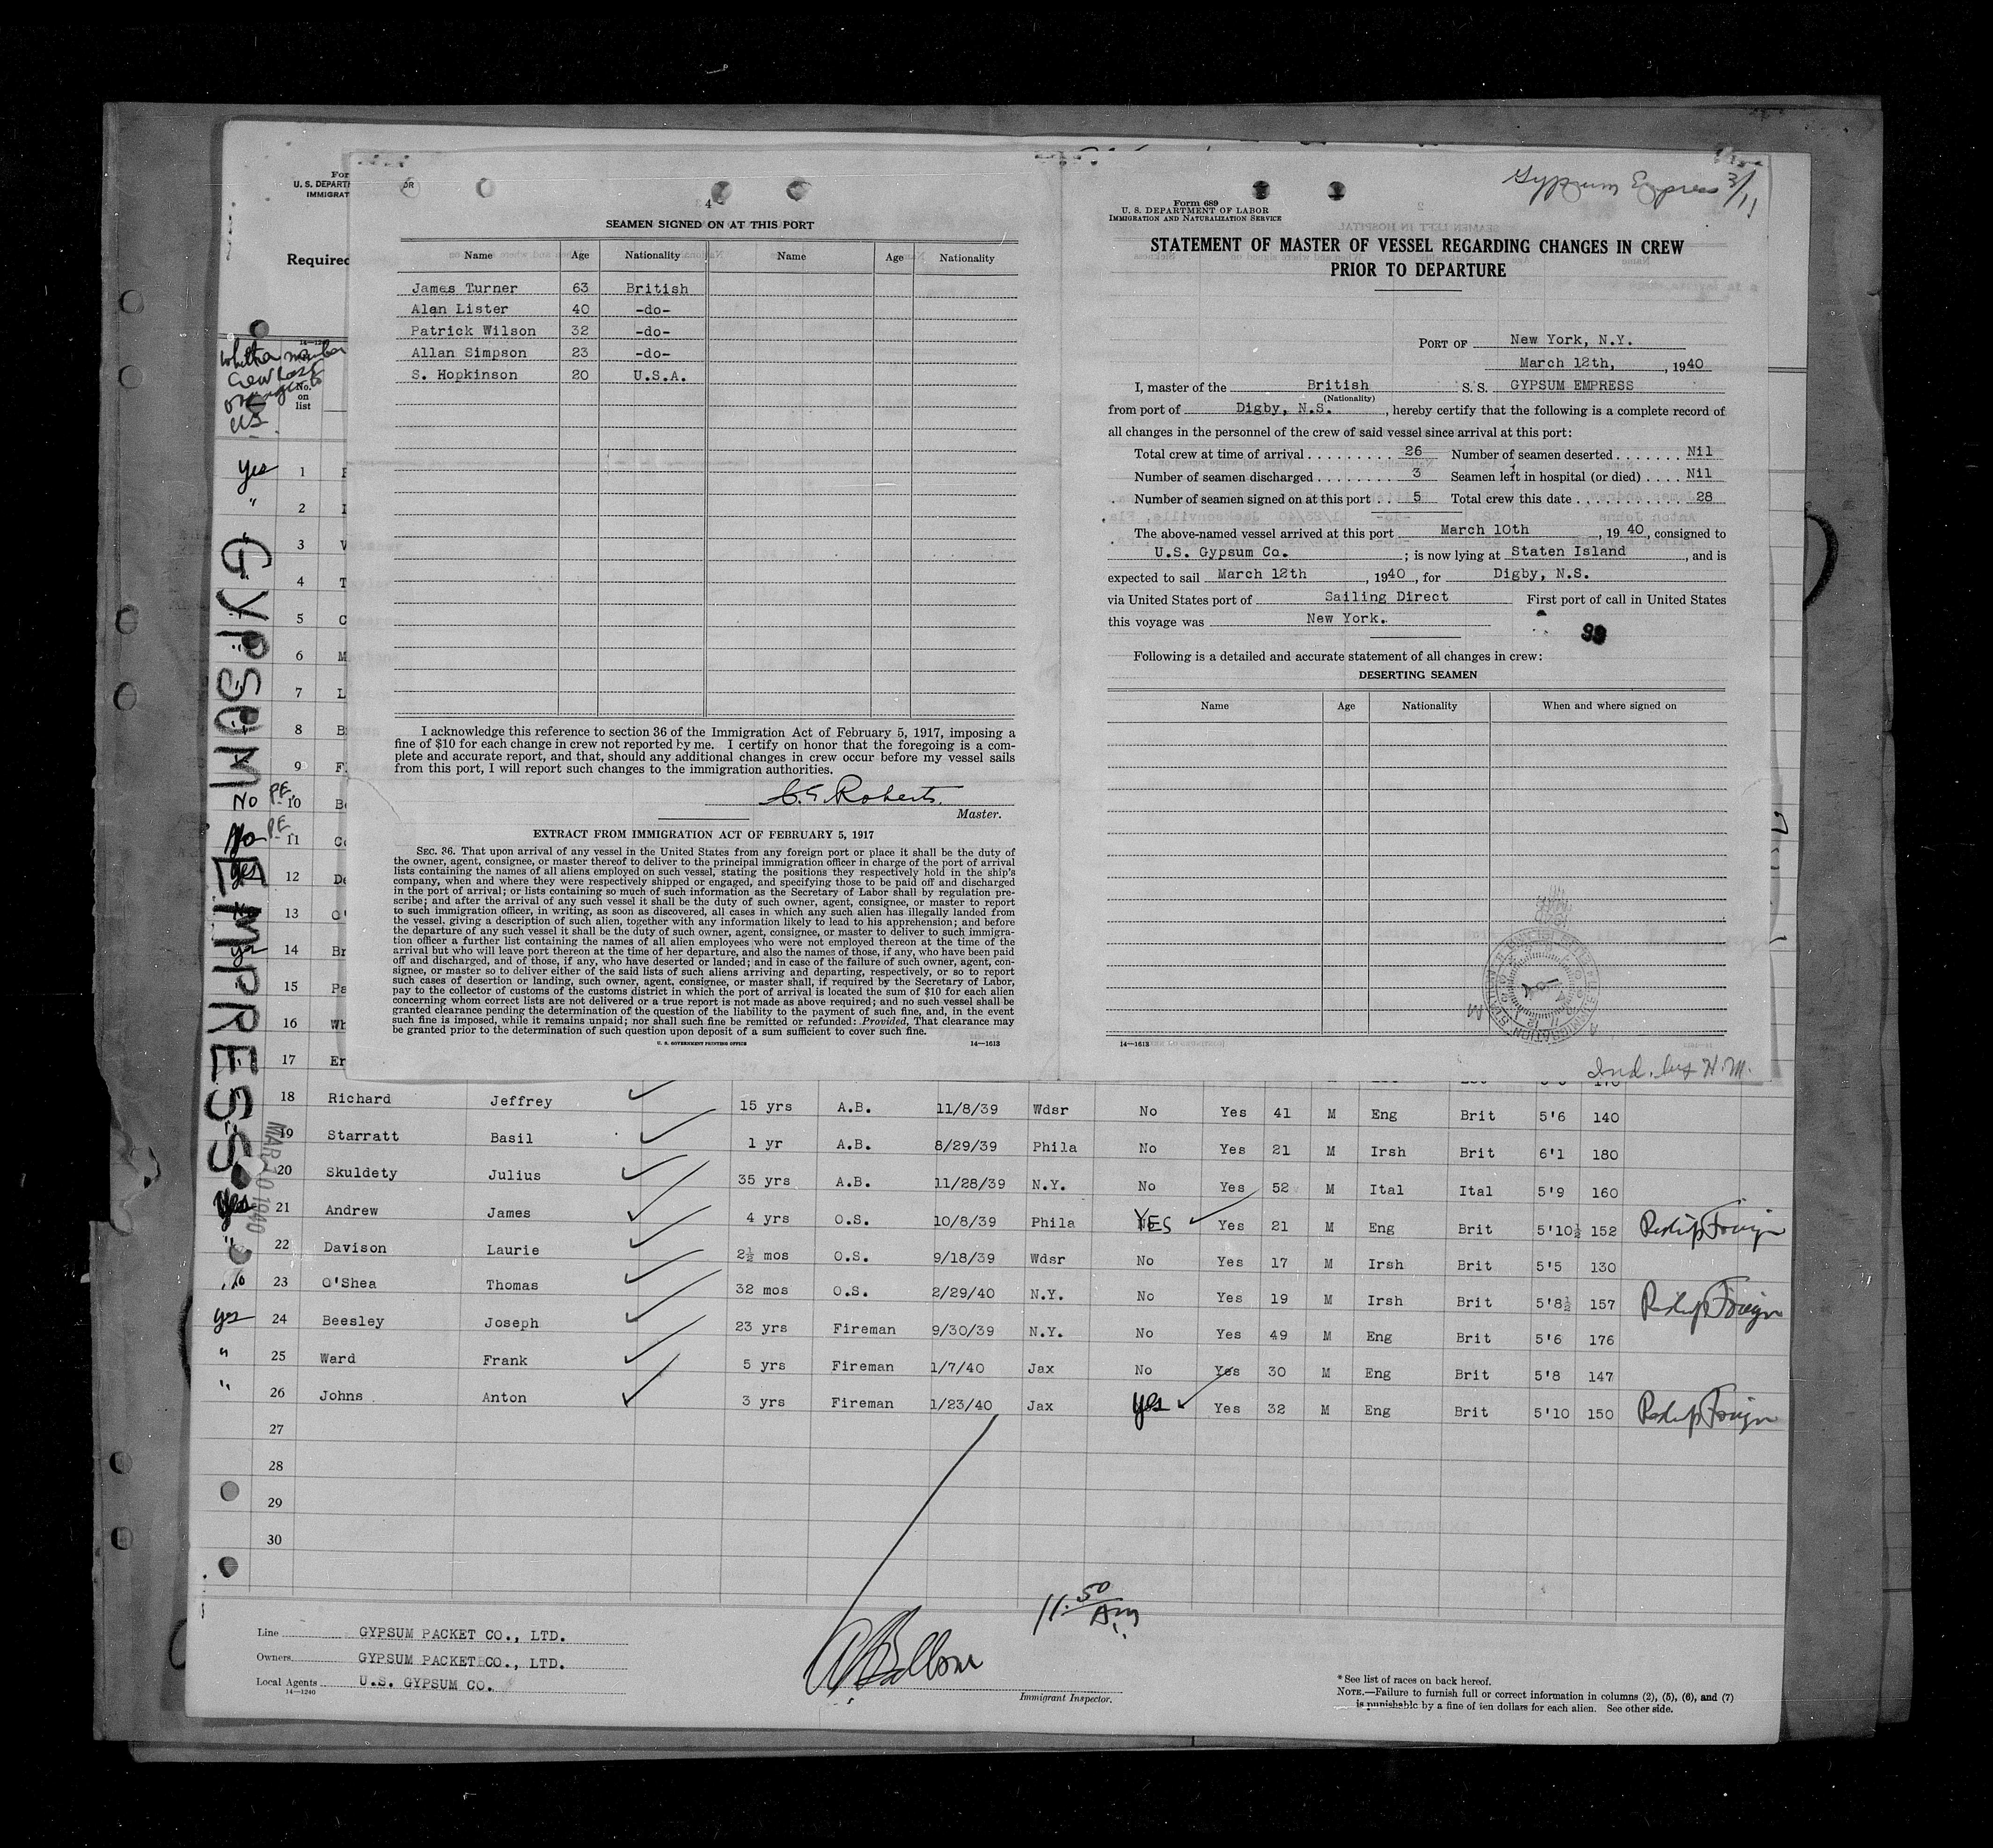 For
U. S. DEPART
IMMIGRAT
Required
4
SEAMEN SIGNED ON AT THIS PORT
Name Age Nationality Name Age Nationality
James Turner 63 British
Alan Lister 40 -do-
Patrick Wilson 32 -do-
Allan Simpson 23 -do-
S. Hopkinson 20 U.S.A.
I acknowledge this reference to section 36 of the Immigration Act of February 5, 1917, imposing a
fine of $10 for each change in crew not reported by me. I certify on honor that the foregoing is a com-
plete and accurate report, and that, should any additional changes in crew occur before my vessel sails
from this port, I will report such changes to the immigration authorities.
Roberts
Master.
EXTRACT FROM IMMIGRATION ACT OF FEBRUARY 5, 1917
SEC. 36. That upon arrival of any vessel in the United States from any foreign port or place it shall be the duty of
the owner, agent, consignee, or master thereof to deliver to the principal immigration officer in charge of the port of arrival
lists containing the names of all aliens employed on such vessel, stating the positions they respectively hold in the ship's
company, when and where they were respectively shipped or engaged, and specifying those to be paid off and discharged
in the port of arrival; or lists containing so much of such information as the Secretary of Labor shall by regulation pre-
scribe; and after the arrival of any such vessel it shall be the duty of such owner, agent, consignee, or master to report
to such immigration officer, in writing, as soon as discovered, all cases in which any such alien has illegally landed from
the vessel, giving a description of such alien, together with any information likely to lead to his apprehension; and before
the departure of any such vessel it shall be the duty of such owner, agent, consignee, or master to deliver to such immigra-
tion officer a further list containing the names of all alien employees who were not employed thereon at the time of the
arrival but who will leave port thereon at the time of her departure, and also the names of those, if any, who have been paid
off and discharged, and of those, if any, who have deserted or landed; and in case of the failure of such owner, agent, con-
signee, or master so to deliver either of the said lists of such aliens arriving and departing, respectively, or so to report
such cases of desertion or landing, such owner, agent, consignee, or master shall, if required by the Secretary of Labor,
pay to the collector of customs of the customs district in which the port of arrival is located the sum of $10 for each alien
concerning whom correct lists are not delivered or a true report is not made as above required; and no such vessel shall be
granted clearance pending the determination of the question of the liability to the payment of such fine, and, in the event
such fine is imposed, while it remains unpaid; nor shall such fine be remitted or refunded: Provided, That clearance may
be granted prior to the determination of such question upon deposit of a sum sufficient to cover such fine.
U. S. GOVERNMENT PRINTING OFFICE 14—1613
Gypsum Express 3/11
Form 689
U. S. DEPARTMENT OF LABOR
IMMIGRATION AND NATURALIZATION SERVICE
STATEMENT OF MASTER OF VESSEL REGARDING CHANGES IN CREW
PRIOR TO DEPARTURE
PORT OF New York, N.Y.
March 12th, , 1940
I, master of the British S. S. GYPSUM EMPRESS
(Nationality)
from port of Digby, N.S. , hereby certify that the following is a complete record of
all changes in the personnel of the crew of said vessel since arrival at this port:
Total crew at time of arrival 26 Number of seamen deserted Nil
Number of seamen discharged 3 Seamen left in hospital (or died) Nil
Number of seamen signed on at this port 5 Total crew this date 28
The above-named vessel arrived at this port March 10th , 1940, consigned to
U.S. Gypsum Co. ; is now lying at Staten Island , and is
expected to sail March 12th , 1940, for Digby, N.S.
via United States port of Sailing Direct First port of call in United States
this voyage was New York.
99
Following is a detailed and accurate statement of all changes in crew:
DESERTING SEAMEN
Name Age Nationality When and where signed on
14—1613
Ind. by H.M.
Whether member
Crew last
US
No. on list
GYPSUM EMPRESS
MAR 10 1940
Yes 1
" 2
3
4
5
6
7
8
9
No P.E. 10
No P.E. 11
Yes 12
13
14
15
16
17
18 Richard Jeffrey 15 yrs A.B. 11/8/39 Wdsr No Yes 41 M Eng Brit 5'6 140
19 Starratt Basil 1 yr A.B. 8/29/39 Phila No Yes 21 M Irsh Brit 6'1 180
20 Skuldety Julius 35 yrs A.B. 11/28/39 N.Y. No Yes 52 M Ital Ital 5'9 160
Yes 21 Andrew James 4 yrs O.S. 10/8/39 Phila YES Yes 21 M Eng Brit 5'10½ 152 Reship Foreign
" 22 Davison Laurie 2½ mos O.S. 9/18/39 Wdsr No Yes 17 M Irsh Brit 5'5 130
No 23 O'Shea Thomas 32 mos O.S. 2/29/40 N.Y. No Yes 19 M Irsh Brit 5'8½ 157 Reship Foreign
yes 24 Beesley Joseph 23 yrs Fireman 9/30/39 N.Y. No Yes 49 M Eng Brit 5'6 176
" 25 Ward Frank 5 yrs Fireman 1/7/40 Jax No Yes 30 M Eng Brit 5'8 147
" 26 Johns Anton 3 yrs Fireman 1/23/40 Jax yes Yes 32 M Eng Brit 5'10 150 Reship Foreign
27
28
29
30
11.50 Am
Line GYPSUM PACKET CO., LTD.
Owners GYPSUM PACKET CO., LTD.
Local Agents U.S. GYPSUM CO.
14—1240
Immigrant Inspector.
* See list of races on back hereof.
NOTE.—Failure to furnish full or correct information in columns (2), (5), (6), and (7)
is punishable by a fine of ten dollars for each alien. See other side.